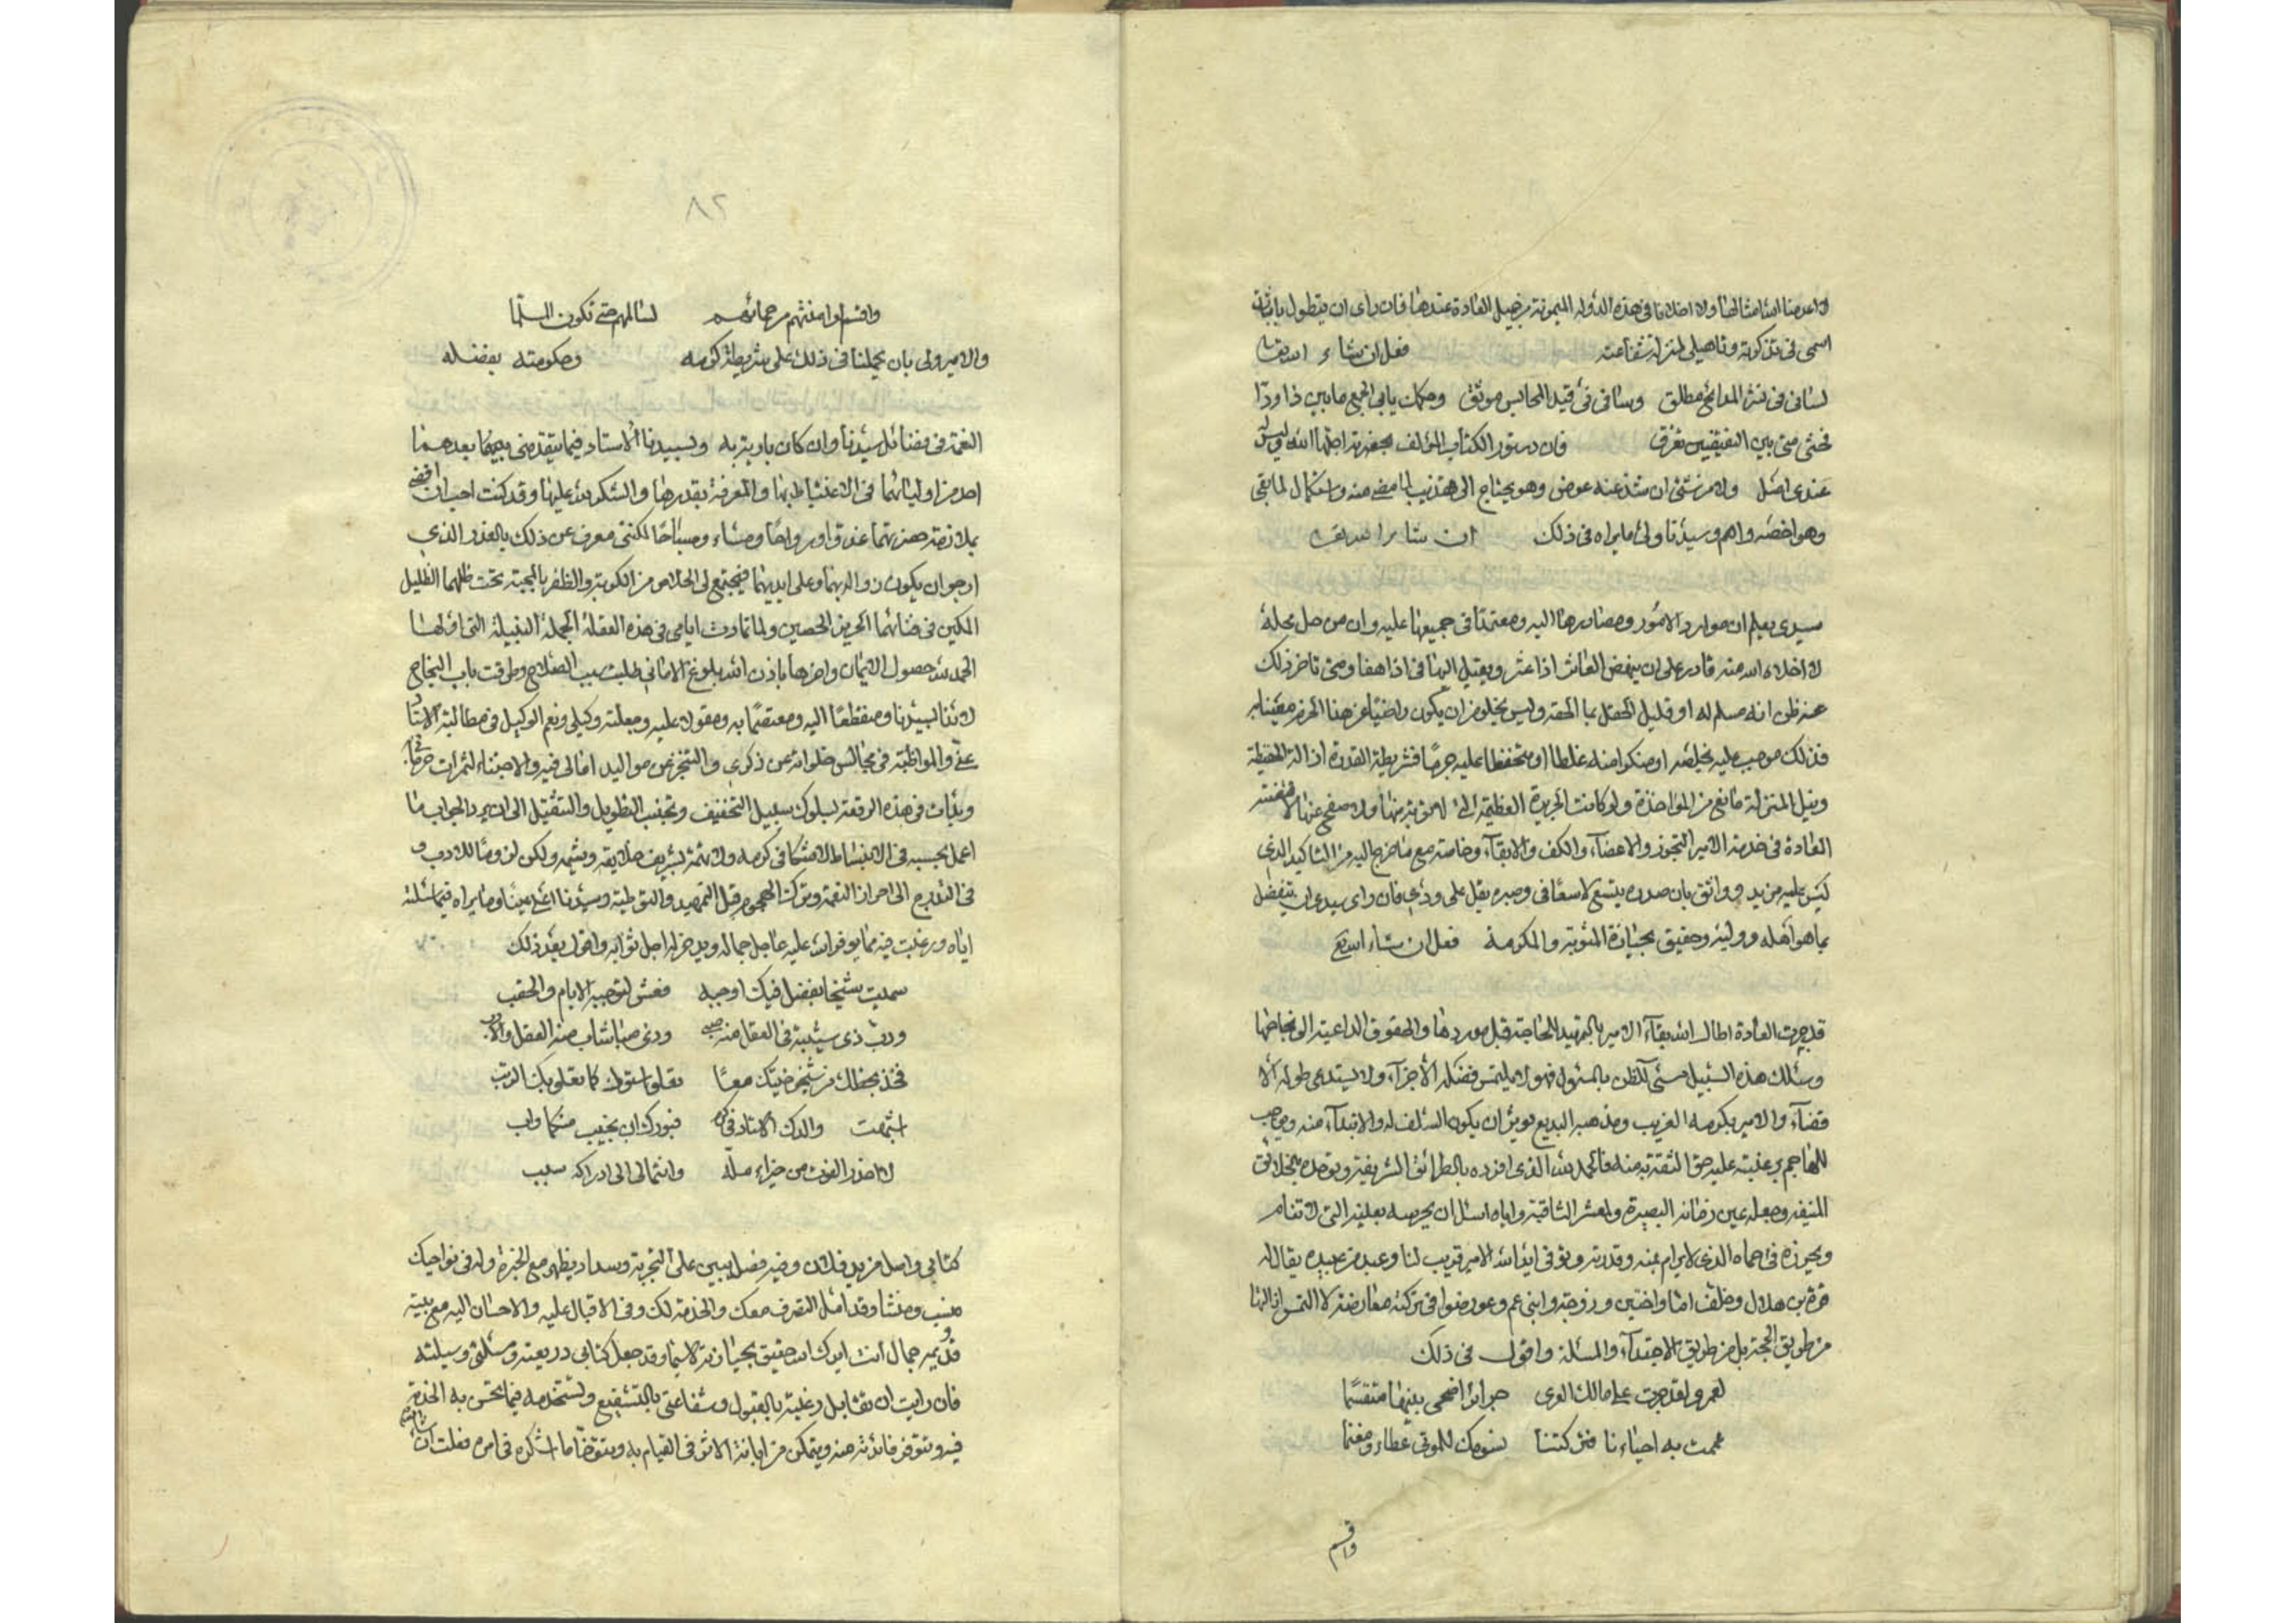 لا اعدمنا الله امثالها ولا اخلانا في هذه الدولة الميمونة من جميل العادة عندها فان راى ان يتطول باثبات
اسمى في تذكرته وتاهيلى لمنزلة شفاعته فعل ان شاء الله تعالى
لسانى في نشر المدائح مطلق وساقى في قيد المحابس موثق وحكمك يابى الجمع ما بين ذا وذا
فحتى متى بين الفريقين تفرق فان دستور الكتاب المؤلف بحضرته اجلها الله وليس له
عندى اصل ولا من شئ ان شذ عنه عوض وهو يحتاج الى تهذيب لما مضى منه واستكمال لما بقى
وهو اخصه واهم وسيدنا ولى ما يراه في ذلك ان شاء الله تعالى
سيدى يعلم ان موارد الامور ومصادرها اليه ومعتمدا في جميعها عليه وان من حل محله
لا اخلاه الله منه قادر على ان ينهض العاثر اذا عثر ويقيل الهافى اذا هفا ومتى تاخر ذلك
عنه ظن انه مسلم له او قليل الحفل بما لحقه وليس يخلو من ان يكون راضيا عن هذا
فذلك موجب عليه تخلصه او منكرا منه غلطا او متحفظا عليه جرما فشريطة القدرة اذالة الحفيظة
ونيل المنزلة مانع من المؤاخذة ولو كانت الجريرة العظيمة التى لا توبة منها ولا صفح عنها
العادة في خدمة الامير التجوز والاغضاء والكف والابقاء وخاصة مع ما خرج اليه من التاكيد الذى
ليس عليه مزيد وواثق بان صدره يتسع لاسعافى وصبره يقل على ودى فان راى سيدى ان يتفضل
بما هو اهله ووليه وحقيق بحيازة المثوبة والمكرمة فعل ان شاء الله تع
قد جرت العادة اطال الله بقاء الامير بالتمهيد للحاجة قبل موردها والحقوق الداعية الى نجاحها
وسلك هذه السبيل مسئ الظن بالمسئول فهو لا يلتمس فضله الا جزاء ولا يستدعى طوله الا
قضاء والامير بكرمه الغريب ومذهبه البديع يؤثر ان يكون السلف له والابتداء منه ويوجب
للهاجم برغبته عليه حق الثقة به منه فالحمد لله الذى افرده بالطرائق الشريفة وتوحده بالخلائق
المنيفة وجعله عين زمانه البصيرة ولمعته الثاقبة واياه اسئل ان يحرسه بعينه التى لا تنام
ويحرزه في حماه الذى لا يرام بمنه وقدرته وتوفى ايد الله الامير قريب لنا وعبد من عبيده يقال له
قرة بن هلال وخلف اما واختين وزوجة وابنى عم وعورضوا في تركته معارضة لا التمس ازالتها
من طريق الحجة بل من طريق الاجتداء والمسئلة واقول في ذلك
لعمرو لقد جرت على مالك الورى جرائر اضحى بينها متقسما
عممت به احياءنا فتركتنا نسومك للموتى عطاء ومغنما
واقسم
٨٢
واقسم لو امنتهم من حمائهم لسالمهم حتى تكون السلما
والامير ولى بان يحملنا في ذلك على شريطة كرمه وحكومته بفضله
النعمة في فضائل سيدنا وان كان بادية به ولسيدنا الاستاد فيما يتقدمنى بهما بعدهما
احد من اوليائهما في الاغتباط بها والمعرفة بقدرها والشكر لله عليها وقد كنت احب ان اقضى
بملازمة حضرتهما غدوا ورواحا ومساء وصباحا لكننى معرف عن ذلك بالعذر الذى
ارجو ان يكون زواله بهما وعلى ايديهما فيجتمع لى الخلاص من الكربة والظفر بالمحبة تحت ظلهما الظليل
الكنين في فنائهما الحريز الحصين ولما تمادت ايامى في هذه العقلة الجملة النبيلة التى اولها
الحمد لله حصول الايمان واخرها باذن الله بلوغ الامانى طلبت سبب الصلاح وطرقت باب النجاح
لائذا بسيدنا ومنقطعا اليه ومعتصما به ومعولا عليه وجعلته وكيلى ونعم الوكيل في مطالبة الاستاد
عنى والمواظبة في مجالس خلواته عن ذكرى والتنجز عن مواليد امالى فيه والاجتناء لثمرات
وبدات في هذه الرقعة بسلوك سبيل التخفيف وتجنب التطويل والتثقيل الى ان يرد الجواب بما
اعمل بحسبه في الانبساط لا متشككا في كرمه ولا تهمة لشريف خلائقه وشيمه ولكن لزوما للادب
في التدرج الى احراز النعمة وترك الهجوم قبل التمهيد والتوطية وسيدنا اعلى عينا وما يراه فيما سئلته
اياه ورغبت فيه مما يوفر الله عليه عاجل جماله ويدخر له اجل ثوابه واقول بعد ذلك
سميت شيخا بفضل فيك اوجبه فعش لتوجبه الايام والحقب
ورب ذى شيبة في العقل منه صبى وذى صبا شاب منه العقل والادب
فخذ بحظك من شيخوختيك معا تعلو استوك كما تعلو بك الرتب
اشبهت والدك الاستاد في كرم فبوركت ابن نجيب منكما واب
لا اعذر الفوت من خيراء صلة وانتما لى الى ادراكه سبب
كتابى واصل من يد فلان وفيه فضل يبين على التجربة وسداد يظهر مع الخبرة وله في نواحيك
منسب ومنشا وقد امل التصرف معك والخدمة لك وفى الاقبال عليه والاحسان اليه مع بيته
قديم جمال انت ايدك الله حقيق بحيازته لا سيما وقد جعل كتابى ذريعته ومسئلتى وسيلته
فان رايت ان تقابل رغبته بالقبول وشفاعتى بالتشفيع وتستخدمه فيما تحسن به الخدمة
فيه وتتوفر فائدته منه ويتمكن من ابانة الاثر في القيام به وتتوخى ما اشكره في امره فعلت ان شاء الله